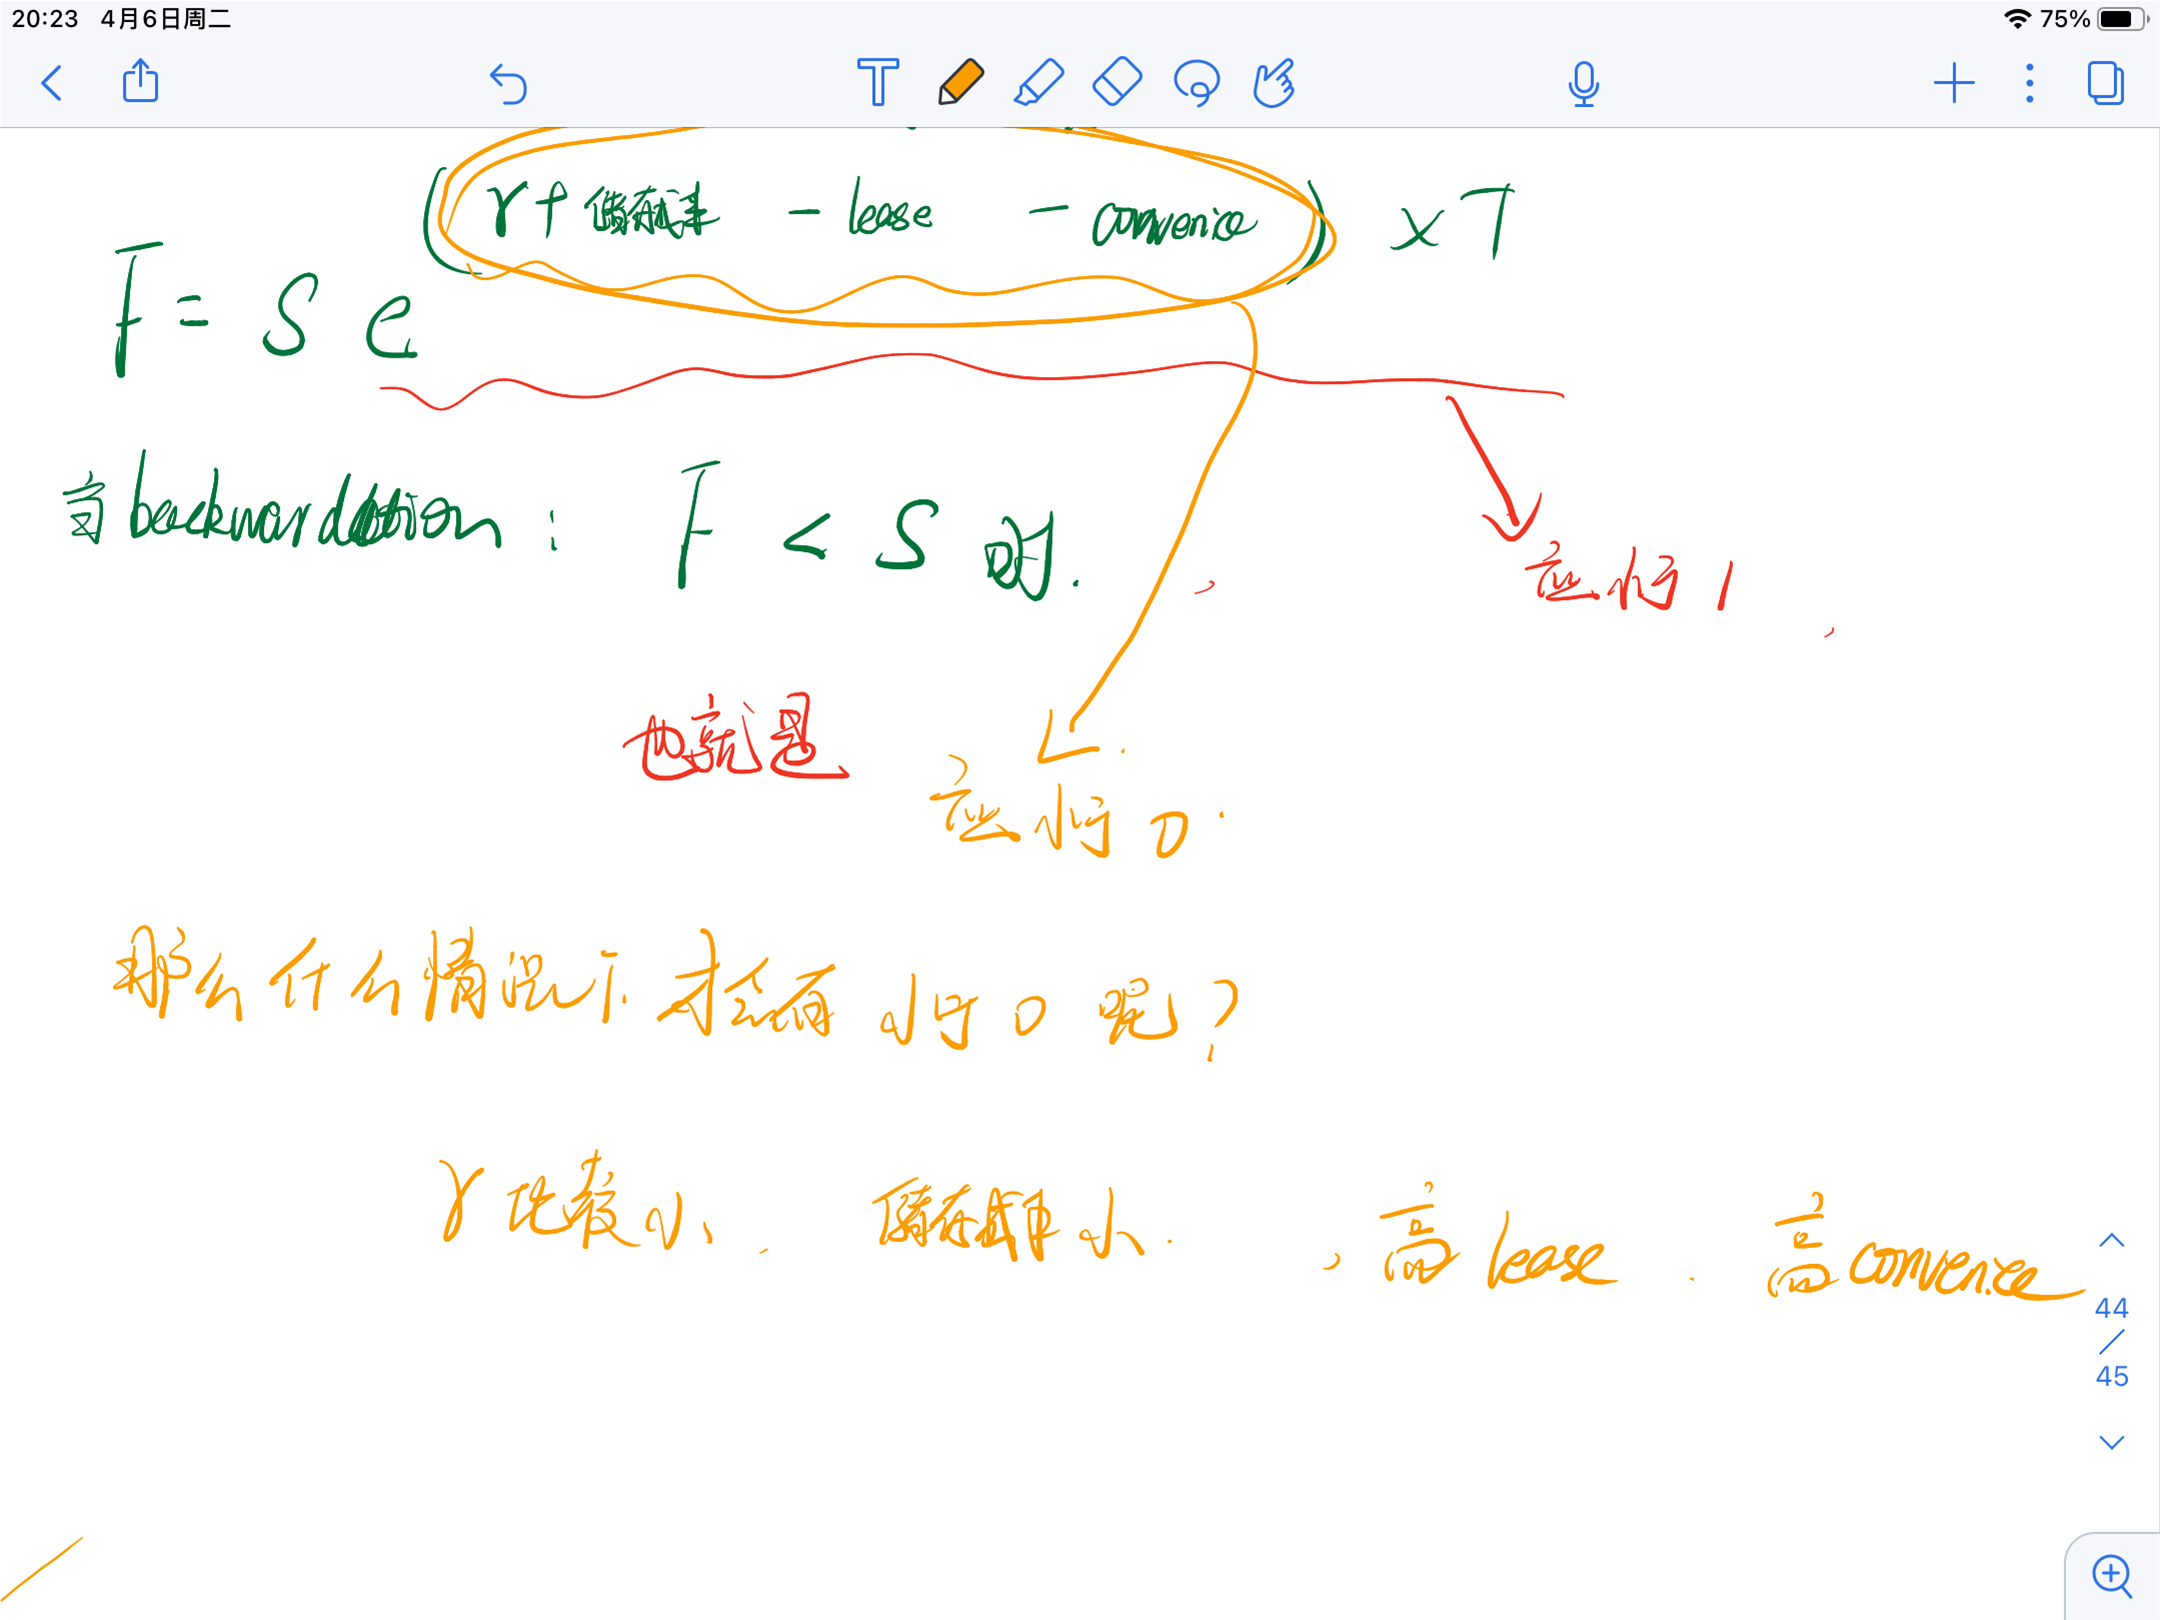 20:23 4月6日周二 75%
(r + 储存成本 - lease - convenice) × T
F = S e
高 backwardation : F < S 时.
应小于 1,
也就是 应小于 0.
那么什么情况下才会有小于 0 呢?
r 比较小, 储存成本小. , 高 lease . 高 convenice
44
/
45